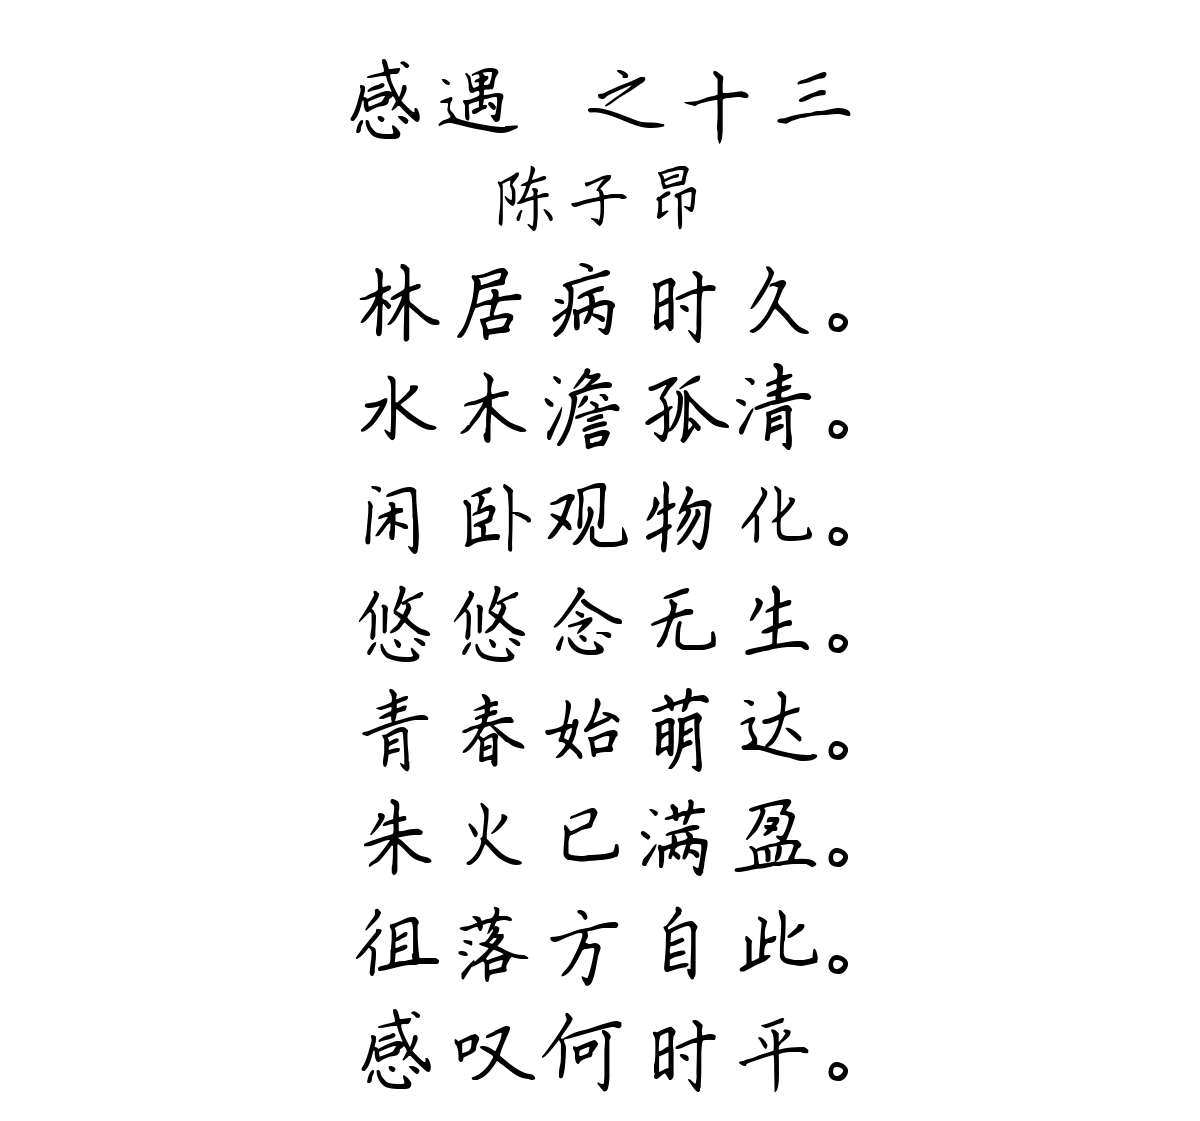 感遇 之十三
陈子昂
林居病时久。
水木澹孤清。
闲卧观物化。
悠悠念无生。
青春始萌达。
朱火已满盈。
徂落方自此。
感叹何时平。